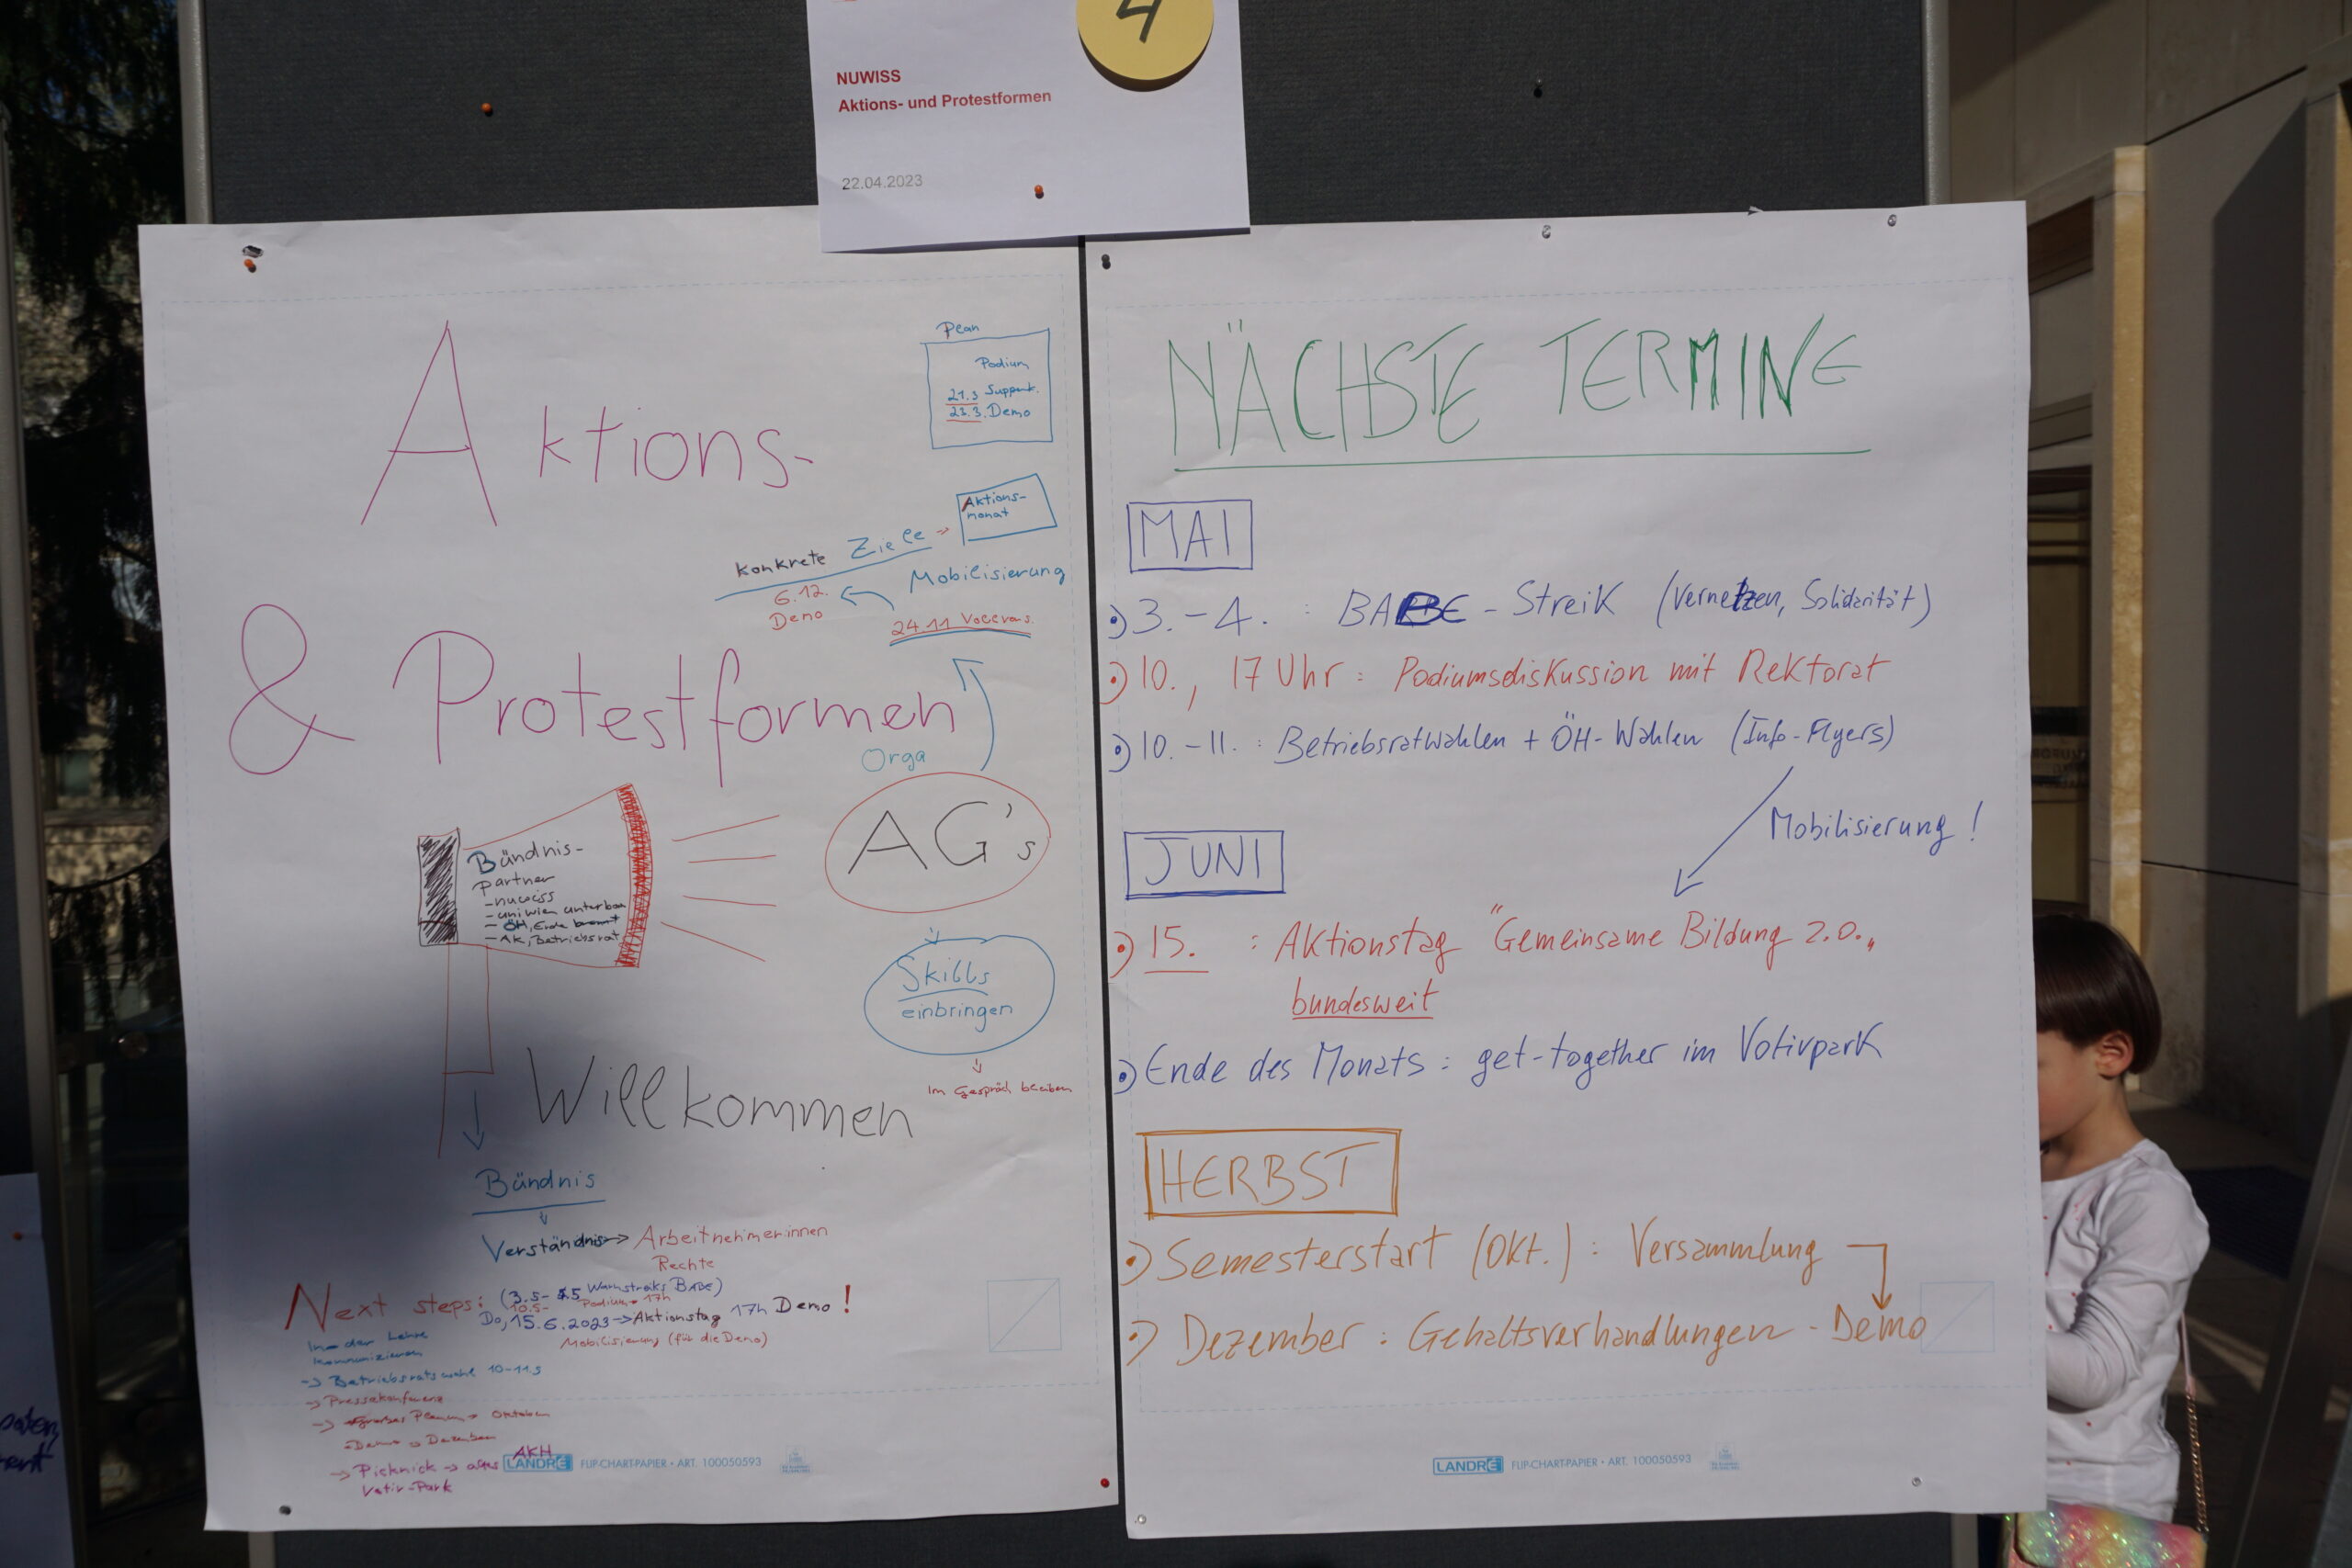 4
NUWISS
Aktions- und Protestformen
22.04.2023
Aktions-
& Protestformen
Plan
Podium
21.3 Support.
23.3. Demo
Aktions-
monat
Konkrete Ziele →
Mobilisierung
6.12.
Demo
24.11 Vollvers.
Orga
AG's
Bündnis-
partner
- nuwiss
- uni wien unterbau
- ÖH, Erde brennt
- AK, Betriebsrat
Skills
einbringen
Im Gespräch bleiben
Willkommen
Bündnis
Verständnis → Arbeitnehmer:innen
Rechte
Next steps: (3.5- 4.5 Warnstreiks BABE)
10.5- Podium → 17h
Do, 15.6.2023 → Aktionstag 17h Demo !
Mobilisierung (für die Demo)
In der Lehre
kommunizieren
→ Betriebsratswahl 10-11.5
→ Pressekonferenz
→ grosses Plenum → Oktober
- Demo → Dezember
→ Picknick → altes AKH
Votiv-Park
LANDRÉ FLIP-CHART-PAPIER • ART. 100050593
NÄCHSTE TERMINE
MAI
•) 3. - 4. : BABE - Streik (Vernetzen, Solidarität)
•) 10., 17 Uhr : Podiumsdiskussion mit Rektorat
•) 10. - 11. : Betriebsratwahlen + ÖH- Wahlen (Info-Flyers)
Mobilisierung !
JUNI
•) 15. : Aktionstag "Gemeinsame Bildung 2.0.„
bundesweit
•) Ende des Monats : get-together im Votivpark
HERBST
•) Semesterstart (Okt.) : Versammlung
•) Dezember : Gehaltsverhandlungen - Demo
LANDRÉ FLIP-CHART-PAPIER • ART. 100050593